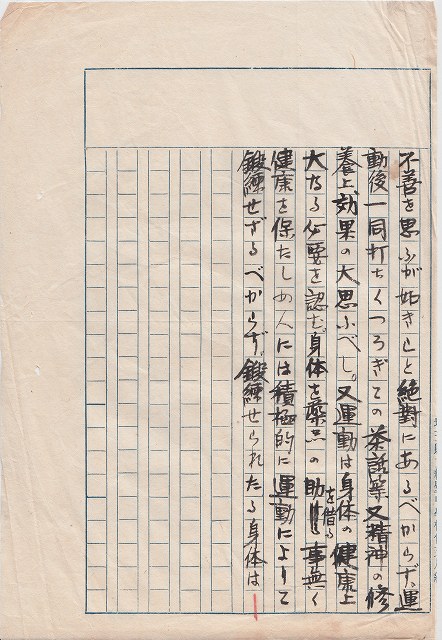 不善を思ふが如きこと絶對にあるべからず、運
動後一同打ちくつろぎての茶話等又精神の修
養上効果の大思ふべし。又運動は身体の健康上
大なる必要を認む身体を藥品の助を借る事無く
健康を保たしめんには積極的に運動によりて
鍛錬せざるべからず、鍛錬せられたる身体は